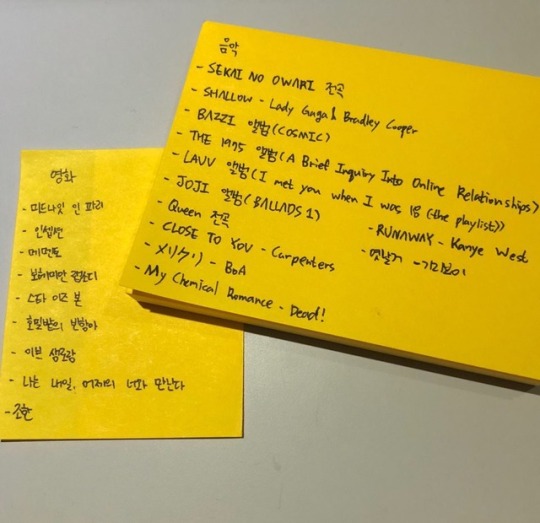 음악
- SEKAI NO OWARI 전곡
- SHALLOW - Lady Gaga & Bradley Cooper
- BAZZI 앨범(COSMIC)
- THE 1975 앨범(A Brief Inquiry Into Online Relationships)
- LAUV 앨범(I met you when I was 18 (the playlist))
- JOJI 앨범(BALLADS 1)
- Queen 전곡
- CLOSE TO YOU - Carpenters
- メリクリ - BoA
- My Chemical Romance - Dead!
- RUNAWAY - Kanye West
- 옛날거 - 기리보이
영화
- 미드나잇 인 파리
- 인셉션
- 메멘토
- 보헤미안 랩소디
- 스타 이즈 본
- 호밀밭의 반항아
- 이브 생로랑
- 나는 내일, 어제의 너와 만난다